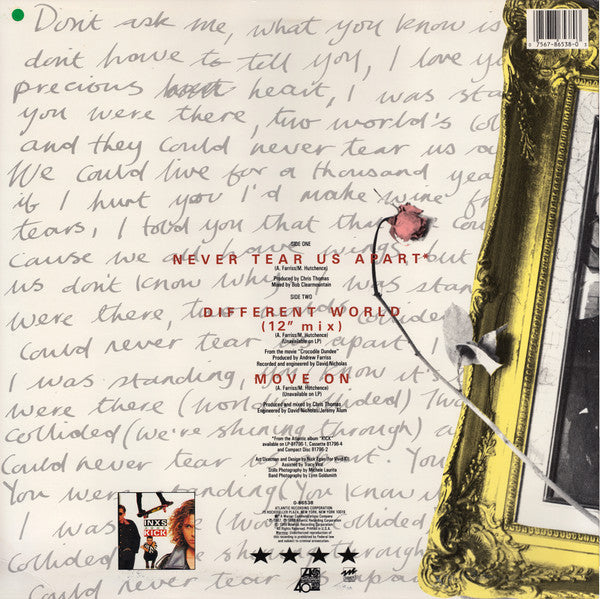 Don't ask me, what you know is
don't have to tell you, I love yo
precious heart, I was sta
you were there, two world's col
and they could never tear us a
We could live for a thousand yea
if I hurt you I'd make wine fr
tears, I told you that we cou
cause we all have wings but
us don't know why I was
there, two
Could never tear us apart I
I was standing, you know it's
were there (Worlds collided) Two
collided (we're shining through) a
Could never tear us apart.
You were standing (You know i
I was Worlds Collided
Collided
Could never tear us apart
0 7567-86538-0 3
SIDE ONE
NEVER TEAR US APART*
(A. Farriss/M. Hutchence)
Produced by Chris Thomas
Mixed by Bob Clearmountain
SIDE TWO
DIFFERENT WORLD
(12" mix)
(A. Farriss/M. Hutchence)
(Unavailable on LP)
From the movie "Crocodile Dundee"
Produced by Andrew Farriss
Recorded and engineered by David Nicholas
MOVE ON
(A. Farriss/M. Hutchence)
(Unavailable on LP)
Produced and mixed by Chris Thomas
Engineered by David Nicholas/Jeremy Alum
*From the Atlantic album "KICK"
available on LP 81796-1, Cassette 81796-4
and Compact Disc 81796-2
Art Direction and Design by Nick Egan
Assisted by Tracy Veal
Stills Photography by Michele Laurita
Band Photography by Lynn Goldsmith
INXS
KICK
0-86538
ATLANTIC RECORDING CORPORATION
75 ROCKEFELLER PLAZA, NEW YORK, NEW YORK 10019
A Warner Communications Company
All Rights Reserved. Printed in U.S.A.
Warning: Unauthorized reproduction of
this recording is prohibited by Federal law
and subject to criminal prosecution.
40